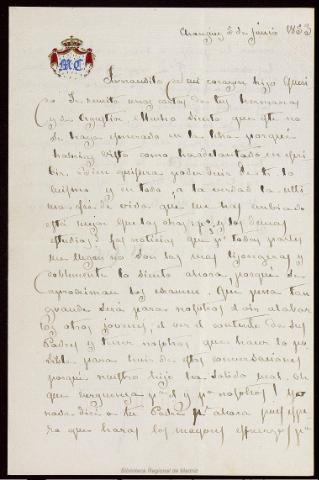 MC
Aranjuez 2 de junio 1853
Fernandito de mi corazon hijo queri
do. Te remito unas cartas de tus hermanas
y de Agustin. Mucho siento que ella no
se haya esmerado en la letra porque
habrias visto como ha adelantado en escri
bir. Bien quisiera poder decir de ti lo
mismo y en todo, a la verdad la ulti
ma que me has embiado
está mejor que las otras, y los demas
estudios? Las noticias que por todas partes
me llegan no son las mas lisonjeras y
doblemente lo siento ahora porque se
aproximan los examenes. Que pena tan
grande será para nosotros oir alabar
los otros jovenes, el ver el contento de sus
Padres y tener nosotros que hacer lo po
sible para huir de estas conversaciones
porque nuestro hijo ha salido mal. Oh
que verguenza pª ti y pª nosotros! Yo
nada diré a tu Padre pª ahora pues espe
ro que harás los mayores esfuerzos pª
Biblioteca Regional de Madrid